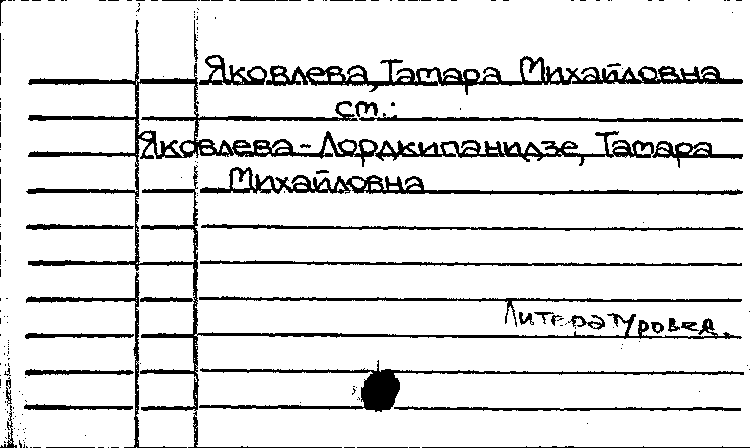 Яковлева, Тамара Михайловна
см.:
Яковлева-Лордкипанидзе, Тамара
Михайловна
Литературовед.